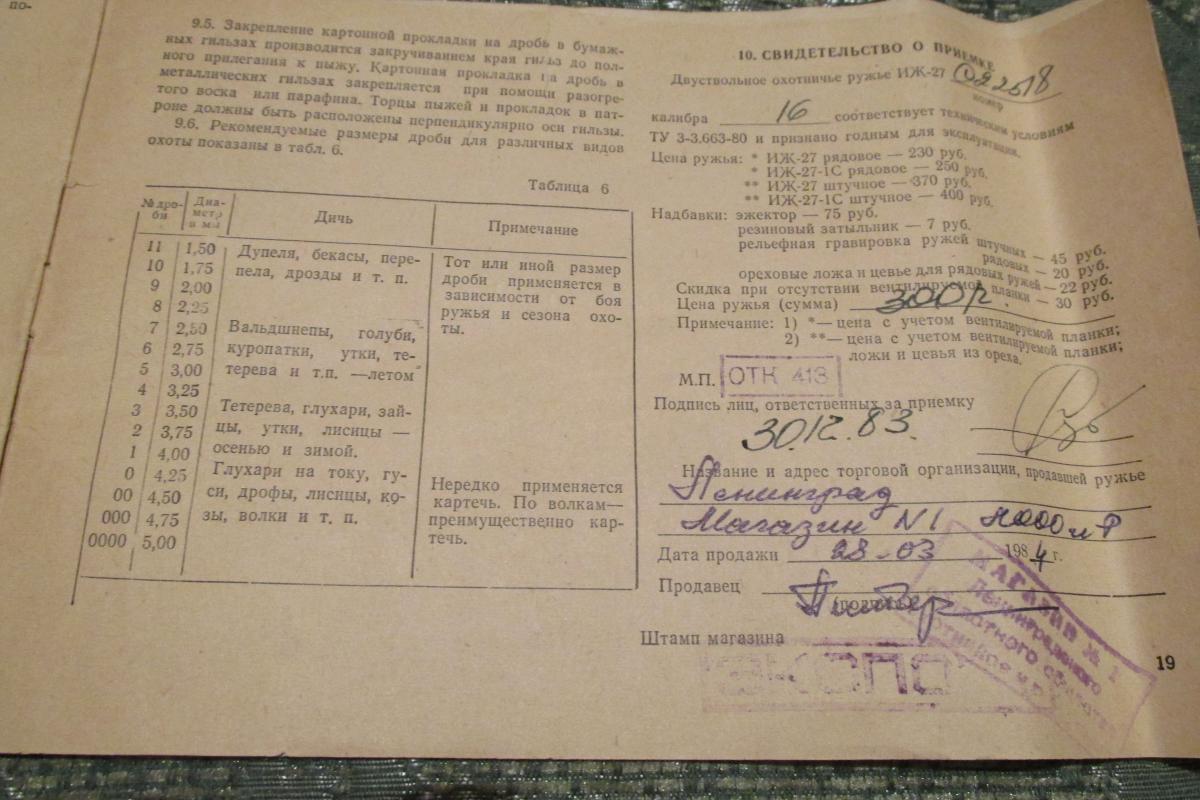 по-
9.5. Закрепление картонной прокладки на дробь в бумаж-
ных гильзах производится закручиванием края гильз до пол-
ного прилегания к пыжу. Картонная прокладка на дробь в
металлических гильзах закрепляется при помощи разогре-
того воска или парафина. Торцы пыжей и прокладок в пат-
роне должны быть расположены перпендикулярно оси гильзы.
9.6. Рекомендуемые размеры дроби для различных видов
охоты показаны в табл. 6.
Таблица 6
№ дро-
би
Диа-
метр
в мм
Дичь
Примечание
11 1,50 Дупеля, бекасы, пере-
10 1,75 пела, дрозды и т. п.
9 2,00
8 2,25
7 2,50 Вальдшнепы, голуби,
6 2,75 куропатки, утки, те-
5 3,00 терева и т.п. —летом
4 3,25
3 3,50 Тетерева, глухари, зай-
2 3,75 цы, утки, лисицы —
1 4,00 осенью и зимой.
0 4,25 Глухари на току, гу-
00 4,50 си, дрофы, лисицы, ко-
000 4,75 зы, волки и т. п.
0000 5,00
Тот или иной размер
дроби применяется в
зависимости от боя
ружья и сезона охо-
ты.
Нередко применяется
картечь. По волкам—
преимущественно кар-
течь.
10. СВИДЕТЕЛЬСТВО О ПРИЕМКЕ
Двуствольное охотничье ружье ИЖ-27
номер
калибра 16 соответствует техническим условиям
ТУ 3-3.663-80 и признано годным для эксплуатации.
Цена ружья: * ИЖ-27 рядовое — 230 руб.
* ИЖ-27-1С рядовое — 250 руб.
** ИЖ-27 штучное — 370 руб.
** ИЖ-27-1С штучное — 400 руб.
Надбавки: эжектор — 75 руб.
резиновый затыльник — 7 руб.
рельефная гравировка ружей штучных — 45 руб.
рядовых — 20 руб.
ореховые ложа и цевье для рядовых ружей — 22 руб.
Скидка при отсутствии вентилируемой планки — 30 руб.
Цена ружья (сумма) 300 р.
Примечание: 1) *—цена с учетом вентилируемой планки;
2) **—цена с учетом вентилируемой планки;
ложи и цевья из ореха.
М.П. ОТК 413
Подпись лиц, ответственных за приемку
30.12.83.
Название и адрес торговой организации, продавшей ружье
Ленинград
Магазин N1
Дата продажи 28-03 1984 г.
Продавец
Штамп магазина
МАГАЗИН № 1
Ленинградского
19